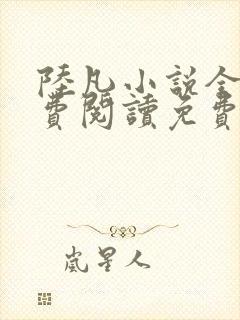 陸凡小説全
費閱讀免費
嵐星人